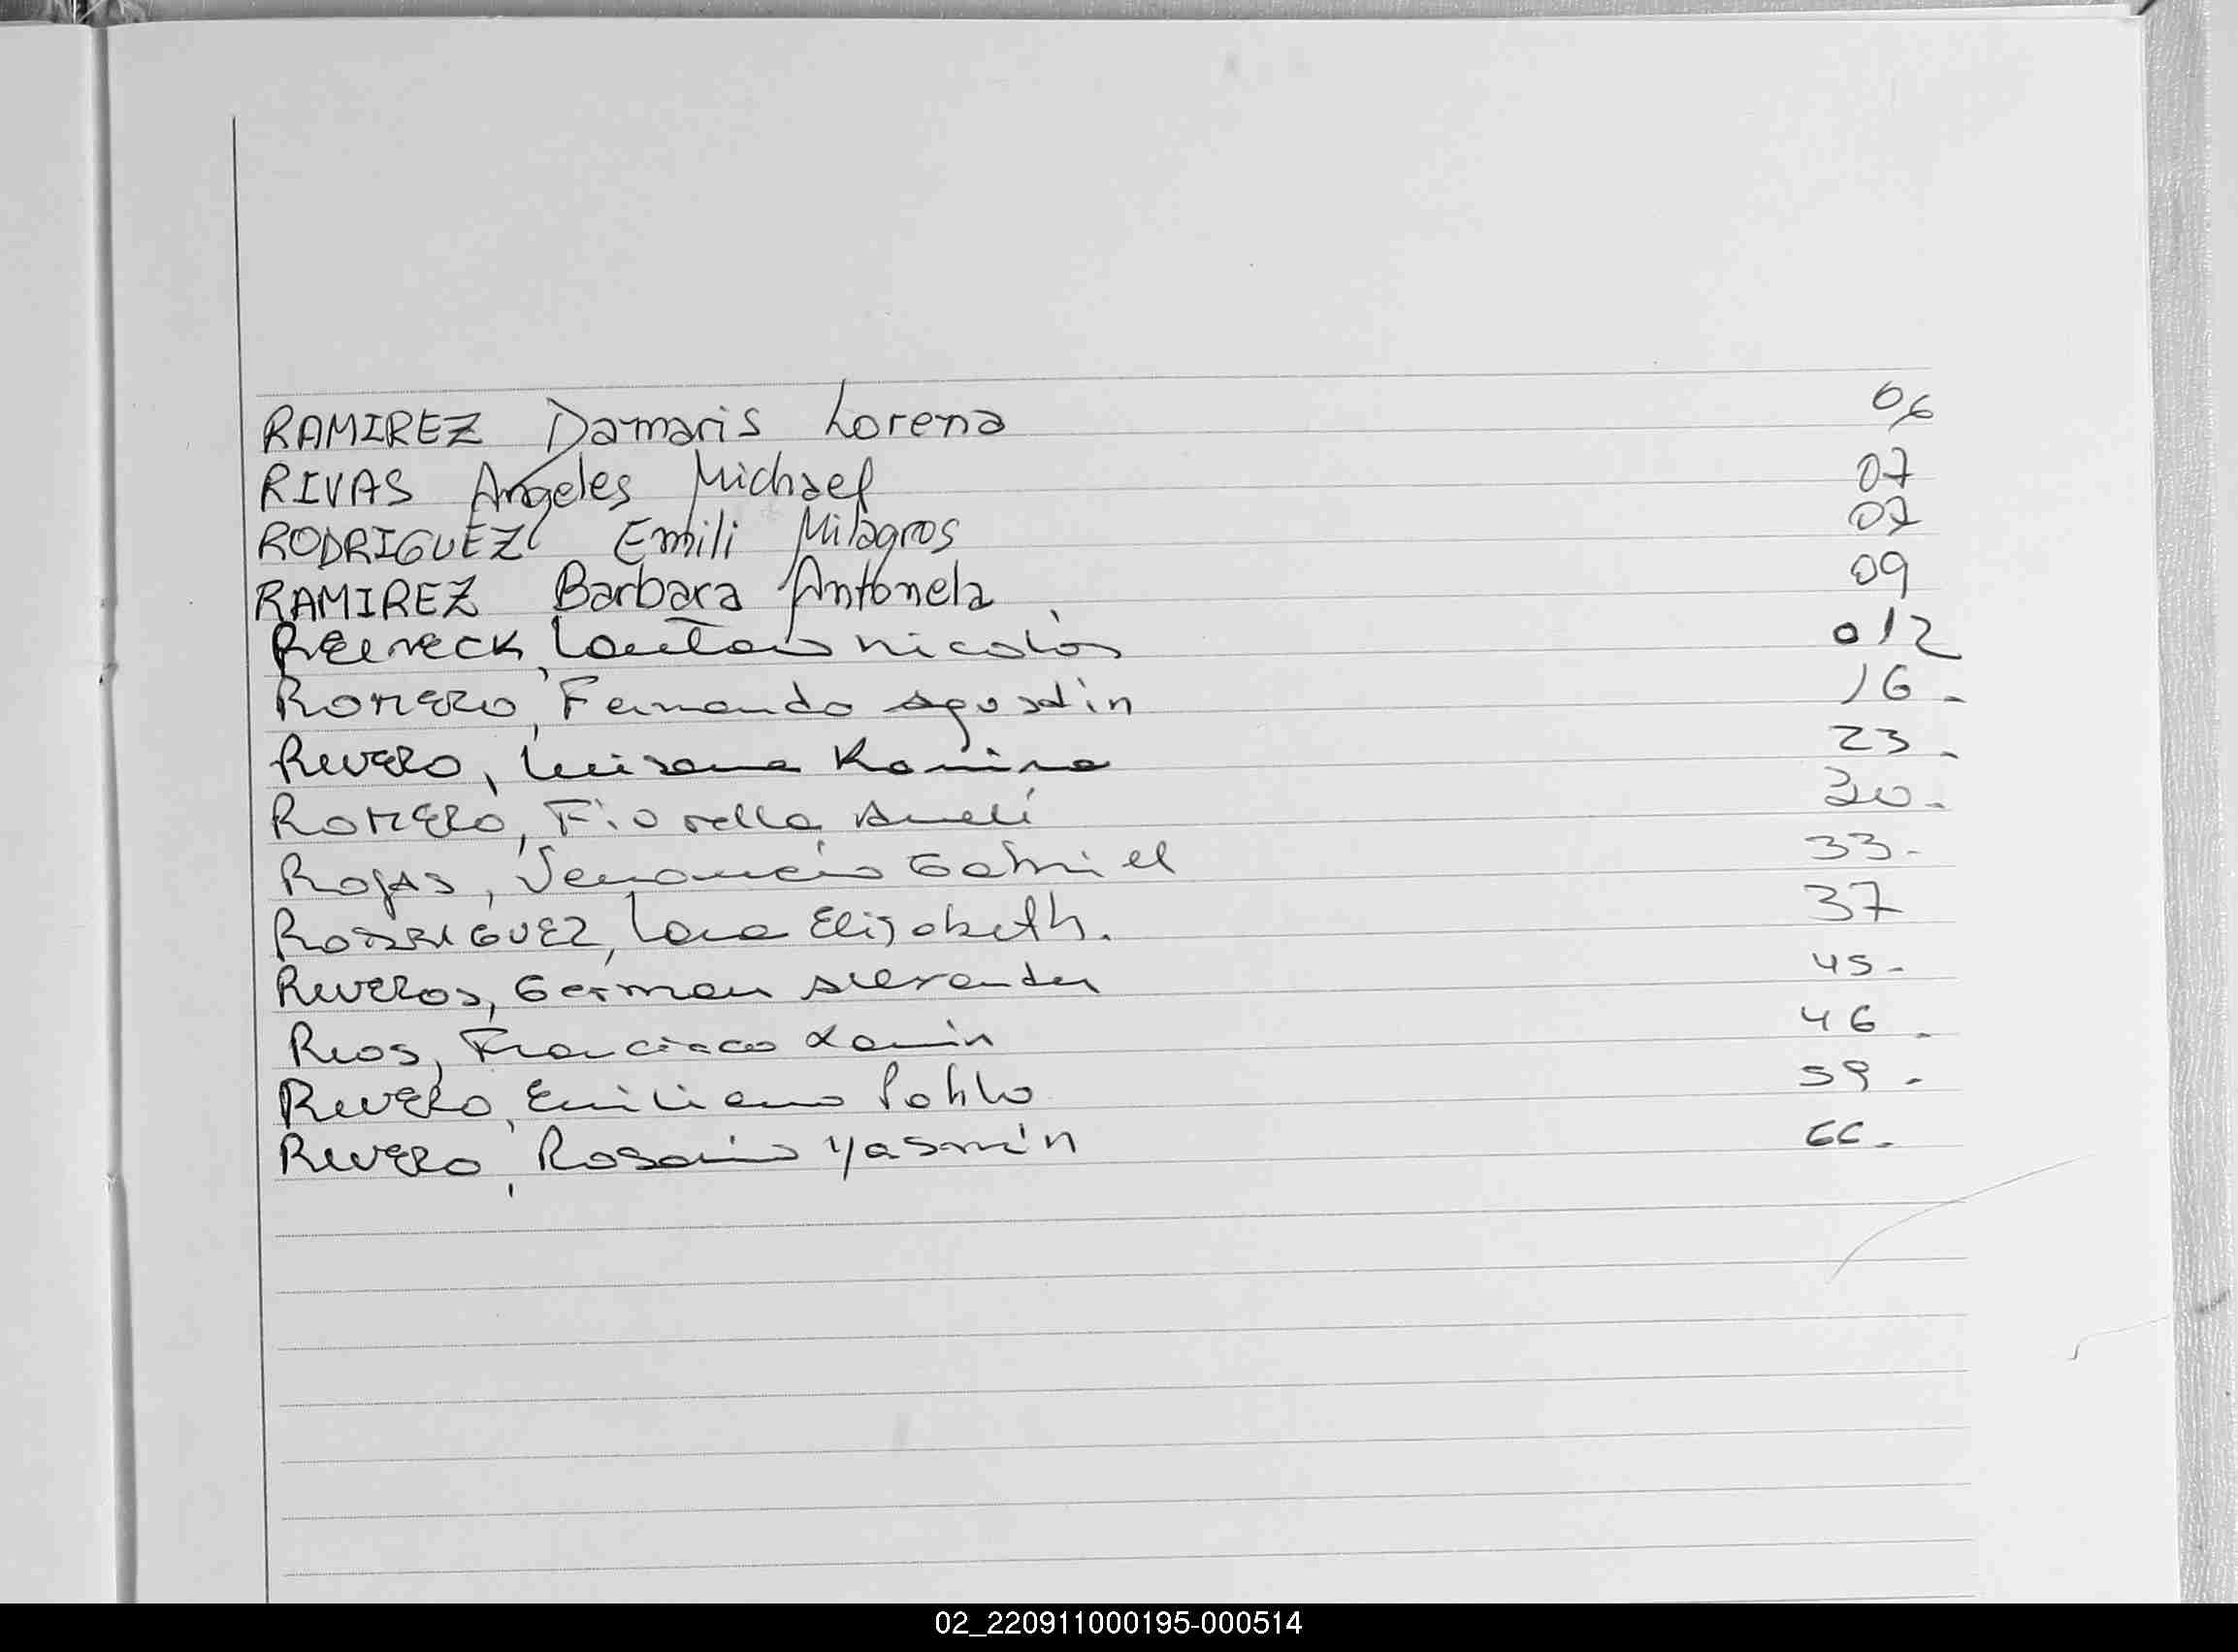 RAMIREZ Damaris Lorena 06
RIVAS Angeles Michael 07
RODRIGUEZ Emili Milagros 07
RAMIREZ Barbara Antonela 09
REINECK, Lautaro Nicolás 012
ROMERO, Fernando Agustín 16.
RIVERO, Luisana Romina 23.
ROMERO, Fiorella Anelí 30.
ROJAS, Venancio Gabriel 33-
RODRIGUEZ, Lara Elizabeth. 37
RIVEROS, German Alexander 45-
RIOS, Francisco 46.
RIVERO, Emiliano Pablo 59.
RIVERO, Rosario Yasmín 66.
02_220911000195-000514